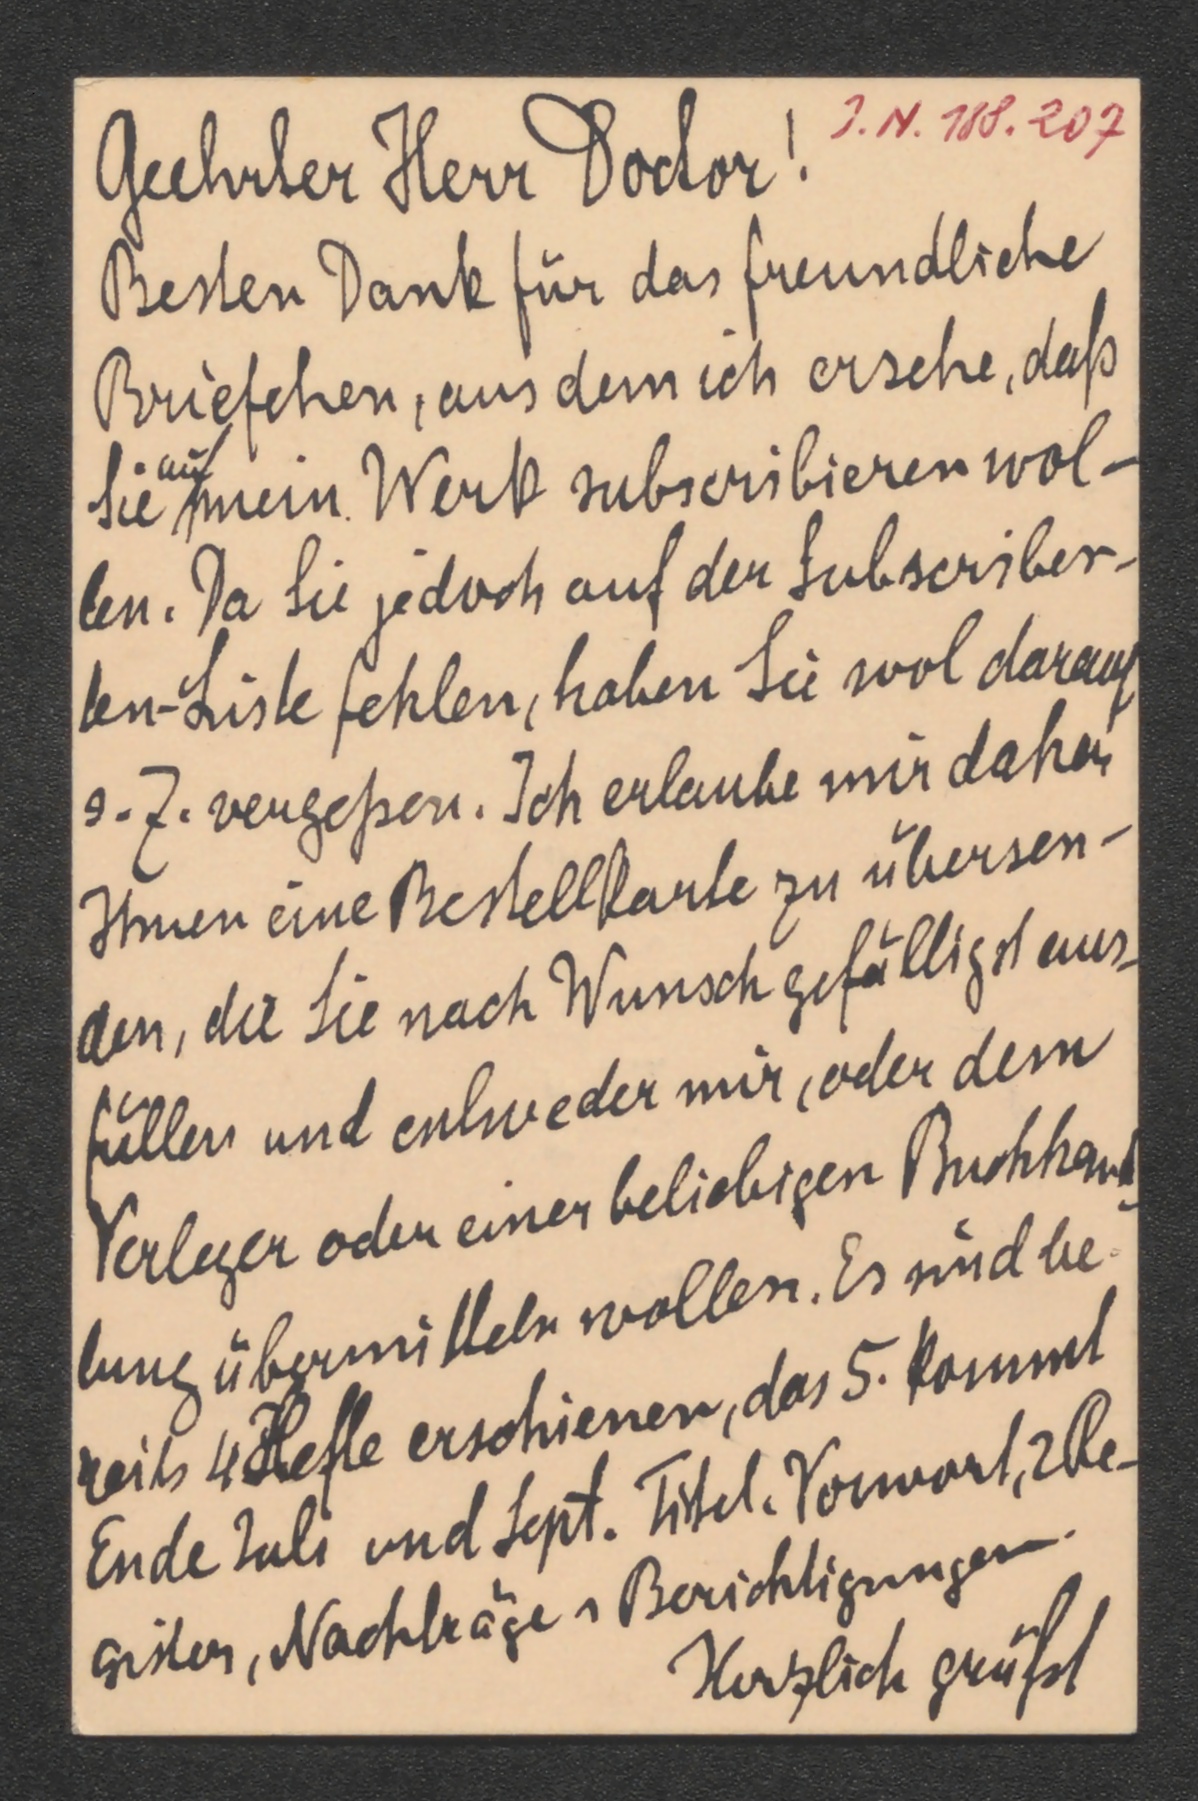 J. N. 188.207
Geehrter Herr Doctor!
Besten Dank für das freundliche
Briefchen, aus dem ich ersehe, daß
Sie auf mein Werk subscribieren wol-
len. Da Sie jedoch auf der Subscriben-
ten-Liste fehlen, haben Sie wol darauf
s. Z. vergeßen. Ich erlaube mir daher
Ihnen eine Bestellkarte zu übersen-
den, die Sie nach Wunsch gefälligst aus-
füllen und entweder mir, oder dem
Verleger oder einer beliebigen Buchhand-
lung übermitteln wollen. Es sind be-
reits 4 Hefte erschienen, das 5. kommt
Ende Juli und Sept. Titel. Vorwort, 2 Re-
gister, Nachträge u Berichtigungen.
Herzlich grüßt